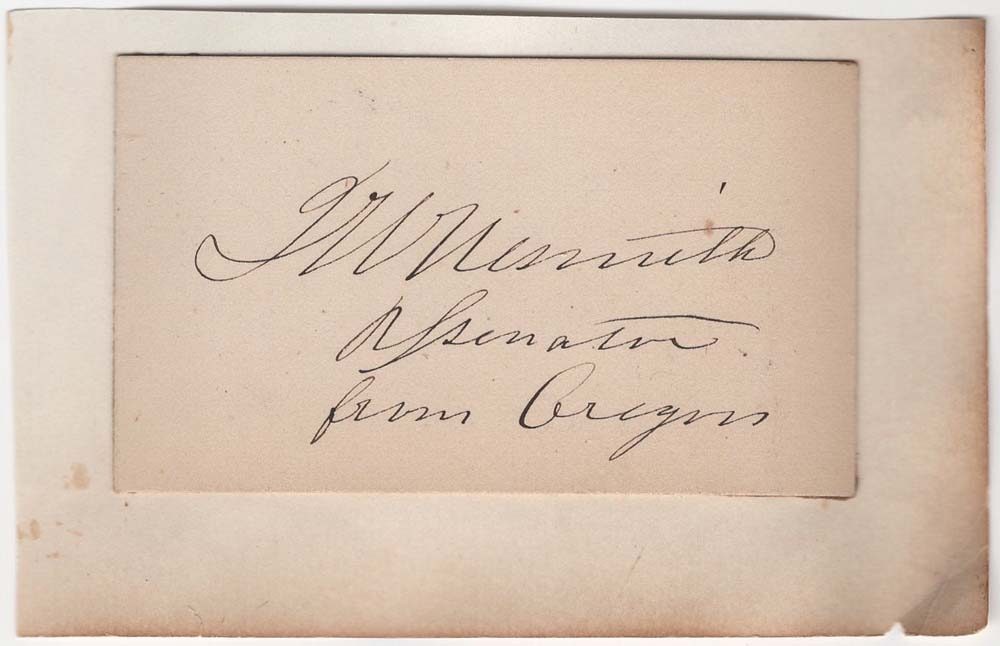 J W Nesmith
US Senator
from Oregon